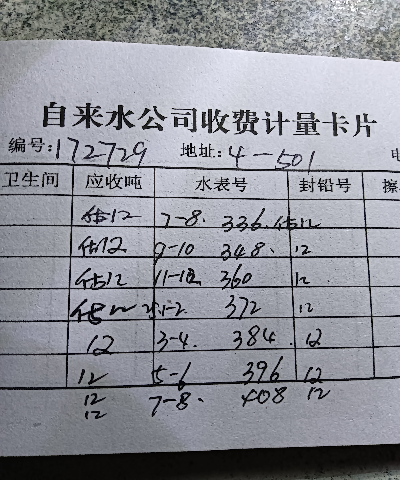 自来水公司收费计量卡片
编号:172729 地址:4-501
卫生间 应收吨 水表号 封铅号
估12 7-8. 336. 估12
估12 9-10 348. 12
估12 11-12 360 12
估12 1-2 372 12
12 3-4. 384. 12
12 5-6 396 12
12 7-8. 408 12
12